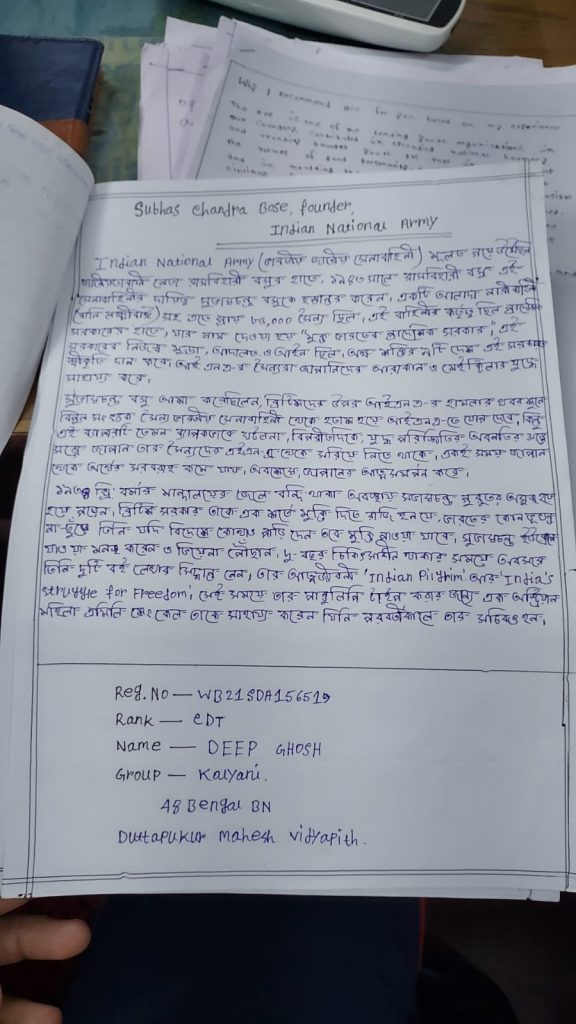 Why I recommend NCC for you based on my experience
Subhas Chandra Bose, founder,
Indian National Army
Indian National Army (ভারতীয় জাতীয় সেনাবাহিনী) মূলত গড়ে উঠেছিল
জাতীয়তাবাদী নেতা রাসবিহারী বসুর হাতে, ১৯৪৩ সালে রাসবিহারী বসু এই
সেনাবাহিনীর দায়িত্ব সুভাষচন্দ্র বসুকে হস্তান্তর করেন, একটি আলাদা নারীবাহিনী
(রানি লক্ষ্মীবাঈ) সহ এতে প্রায় ৮৫,০০০ সৈন্য ছিল, এই বাহিনীর কর্তৃত্ব ছিল প্রাদেশিক
সরকারের হাতে, যার নাম দেওয়া হয় "মুক্ত ভারতের প্রাদেশিক সরকার", এই
সরকারের নিজস্ব মুদ্রা, আদালত ও আইন ছিল, অক্ষ শক্তির ৯টি দেশ এই সরকারকে
স্বীকৃতি দান করে। আই.এন.এ-র সৈন্যরা জাপানিদের আরাকান ও মেইক্টিলার যুদ্ধে
সাহায্য করে,
সুভাষচন্দ্র বসু আশা করেছিলেন, ব্রিটিশদের উপর আইএনএ-র হামলার খবর শুনে
বিপুল সংখ্যক সৈন্য ভারতীয় সেনাবাহিনী থেকে হতাশ হয়ে আইএনএ-তে যোগ দেবে, কিন্তু
এই ব্যাপারটি তেমন ব্যাপকভাবে ঘটলনা, বিপরীতদিকে, যুদ্ধ পরিস্থিতির অবনতির সাথে
সাথে জাপান তার সৈন্যদের আইএনএ থেকে সরিয়ে নিতে থাকে, একই সময় জাপান
থেকে অর্থের সরবরাহ কমে যায়, অবশেষে জাপানের আত্মসমর্পন করে,
বর্মার মান্দালয়ের জেলে বন্দি থাকা অবস্থায় সুভাষচন্দ্র গুরুতর অসুস্থ হয়ে
পড়েন, ব্রিটিশ সরকার তাকে এক শর্তে মুক্তি দিতে রাজি হন যে, ভারতের কোন ভূখণ্ড
না-ছুঁয়ে তিনি যদি বিদেশে কোথাও পাড়ি দেন তবে মুক্তি পাওয়া যাবে, সুভাষচন্দ্র ইউরোপে
যাওয়া মনস্থ করেন ও ভিয়েনা পৌঁছান, দু বছর চিকিৎসাধীন থাকার সময়ে অবসরে
তিনি দুটি বই লেখার সিদ্ধান্ত নেন, তার আত্মজীবনী 'Indian Pilgrim' আর 'India's
struggle for Freedom', সেই সময়ে তার পান্ডুলিপি টাইপ করার জন্যে এক অস্ট্রিয়ান
মহিলা এমিলি শেংকেল তাকে সাহায্য করেন যিনি পরবর্তীকালে তার সচিবও হন,
Reg.No — WB21SDA156519
Rank — CDT
Name — DEEP GHOSH
Group — Kalyani.
48 Bengal BN
Duttapukur Mahesh Vidyapith.